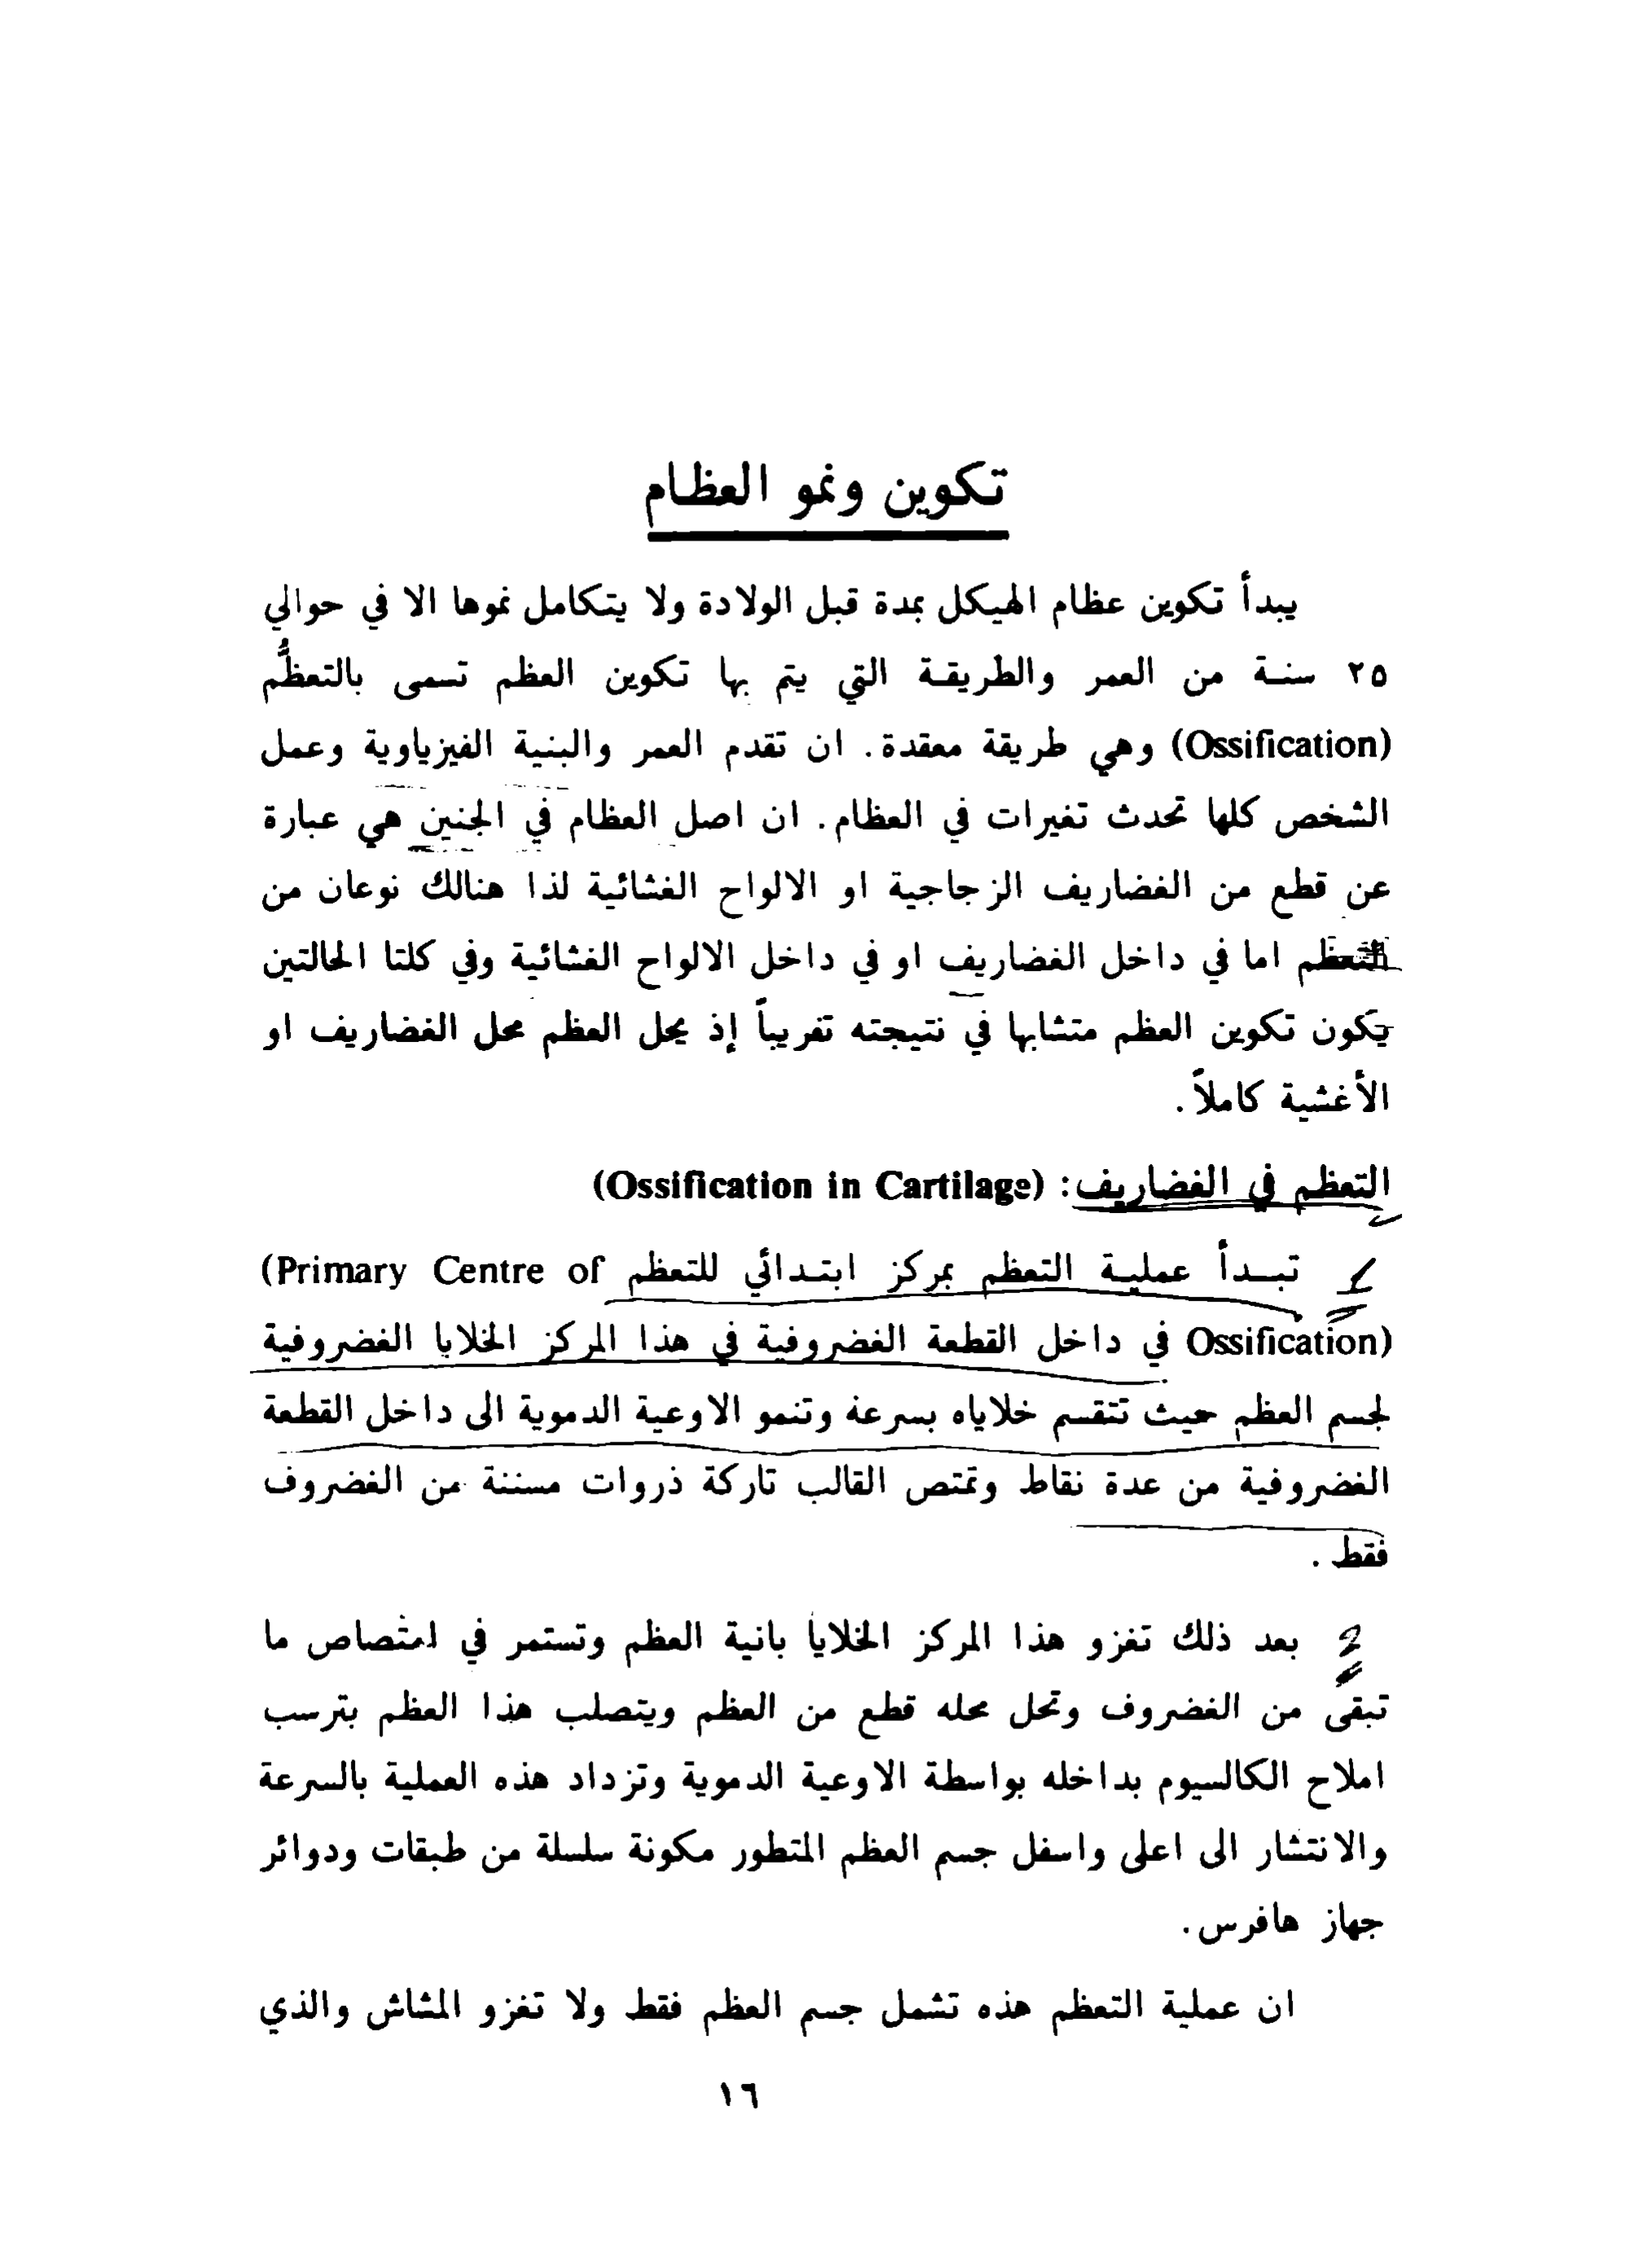 تكوين ونمو العظام
يبدأ تكوين عظام الهيكل بمدة قبل الولادة ولا يتكامل نموها الا في حوالي
٢٥ سنة من العمر والطريقة التي يتم بها تكوين العظم تسمى بالتعظُّم
(Ossification) وهي طريقة معقدة. ان تقدم العمر والبنية الفيزياوية وعمل
الشخص كلها تحدث تغيرات في العظام. ان اصل العظام في الجنين هي عبارة
عن قطع من الغضاريف الزجاجية او الالواح الغشائية لذا هنالك نوعان من
التعظم اما في داخل الغضاريف او في داخل الالواح الغشائية وفي كلتا الحالتين
يكون تكوين العظم متشابها في نتيجته تقريباً إذ يحل العظم محل الغضاريف او
الأغشية كاملاً.
التعظم في الغضاريف: (Ossification in Cartilage)
1 تبدأ عملية التعظم بمركز ابتدائي للتعظم (Primary Centre of
Ossification) في داخل القطعة الغضروفية في هذا المركز الخلايا الغضروفية
لجسم العظم حيث تتقسم خلاياه بسرعة وتنمو الاوعية الدموية الى داخل القطعة
الغضروفية من عدة نقاط وتمتص القالب تاركة ذروات مسننة من الغضروف
فقط.
2 بعد ذلك تغزو هذا المركز الخلايا بانية العظم وتستمر في امتصاص ما
تبقى من الغضروف وتحل محله قطع من العظم ويتصلب هذا العظم بترسب
املاح الكالسيوم بداخله بواسطة الاوعية الدموية وتزداد هذه العملية بالسرعة
والانتشار الى اعلى واسفل جسم العظم المتطور مكونة سلسلة من طبقات ودوائر
جهاز هافرس.
ان عملية التعظم هذه تشمل جسم العظم فقط ولا تغزو المشاش والذي
١٦